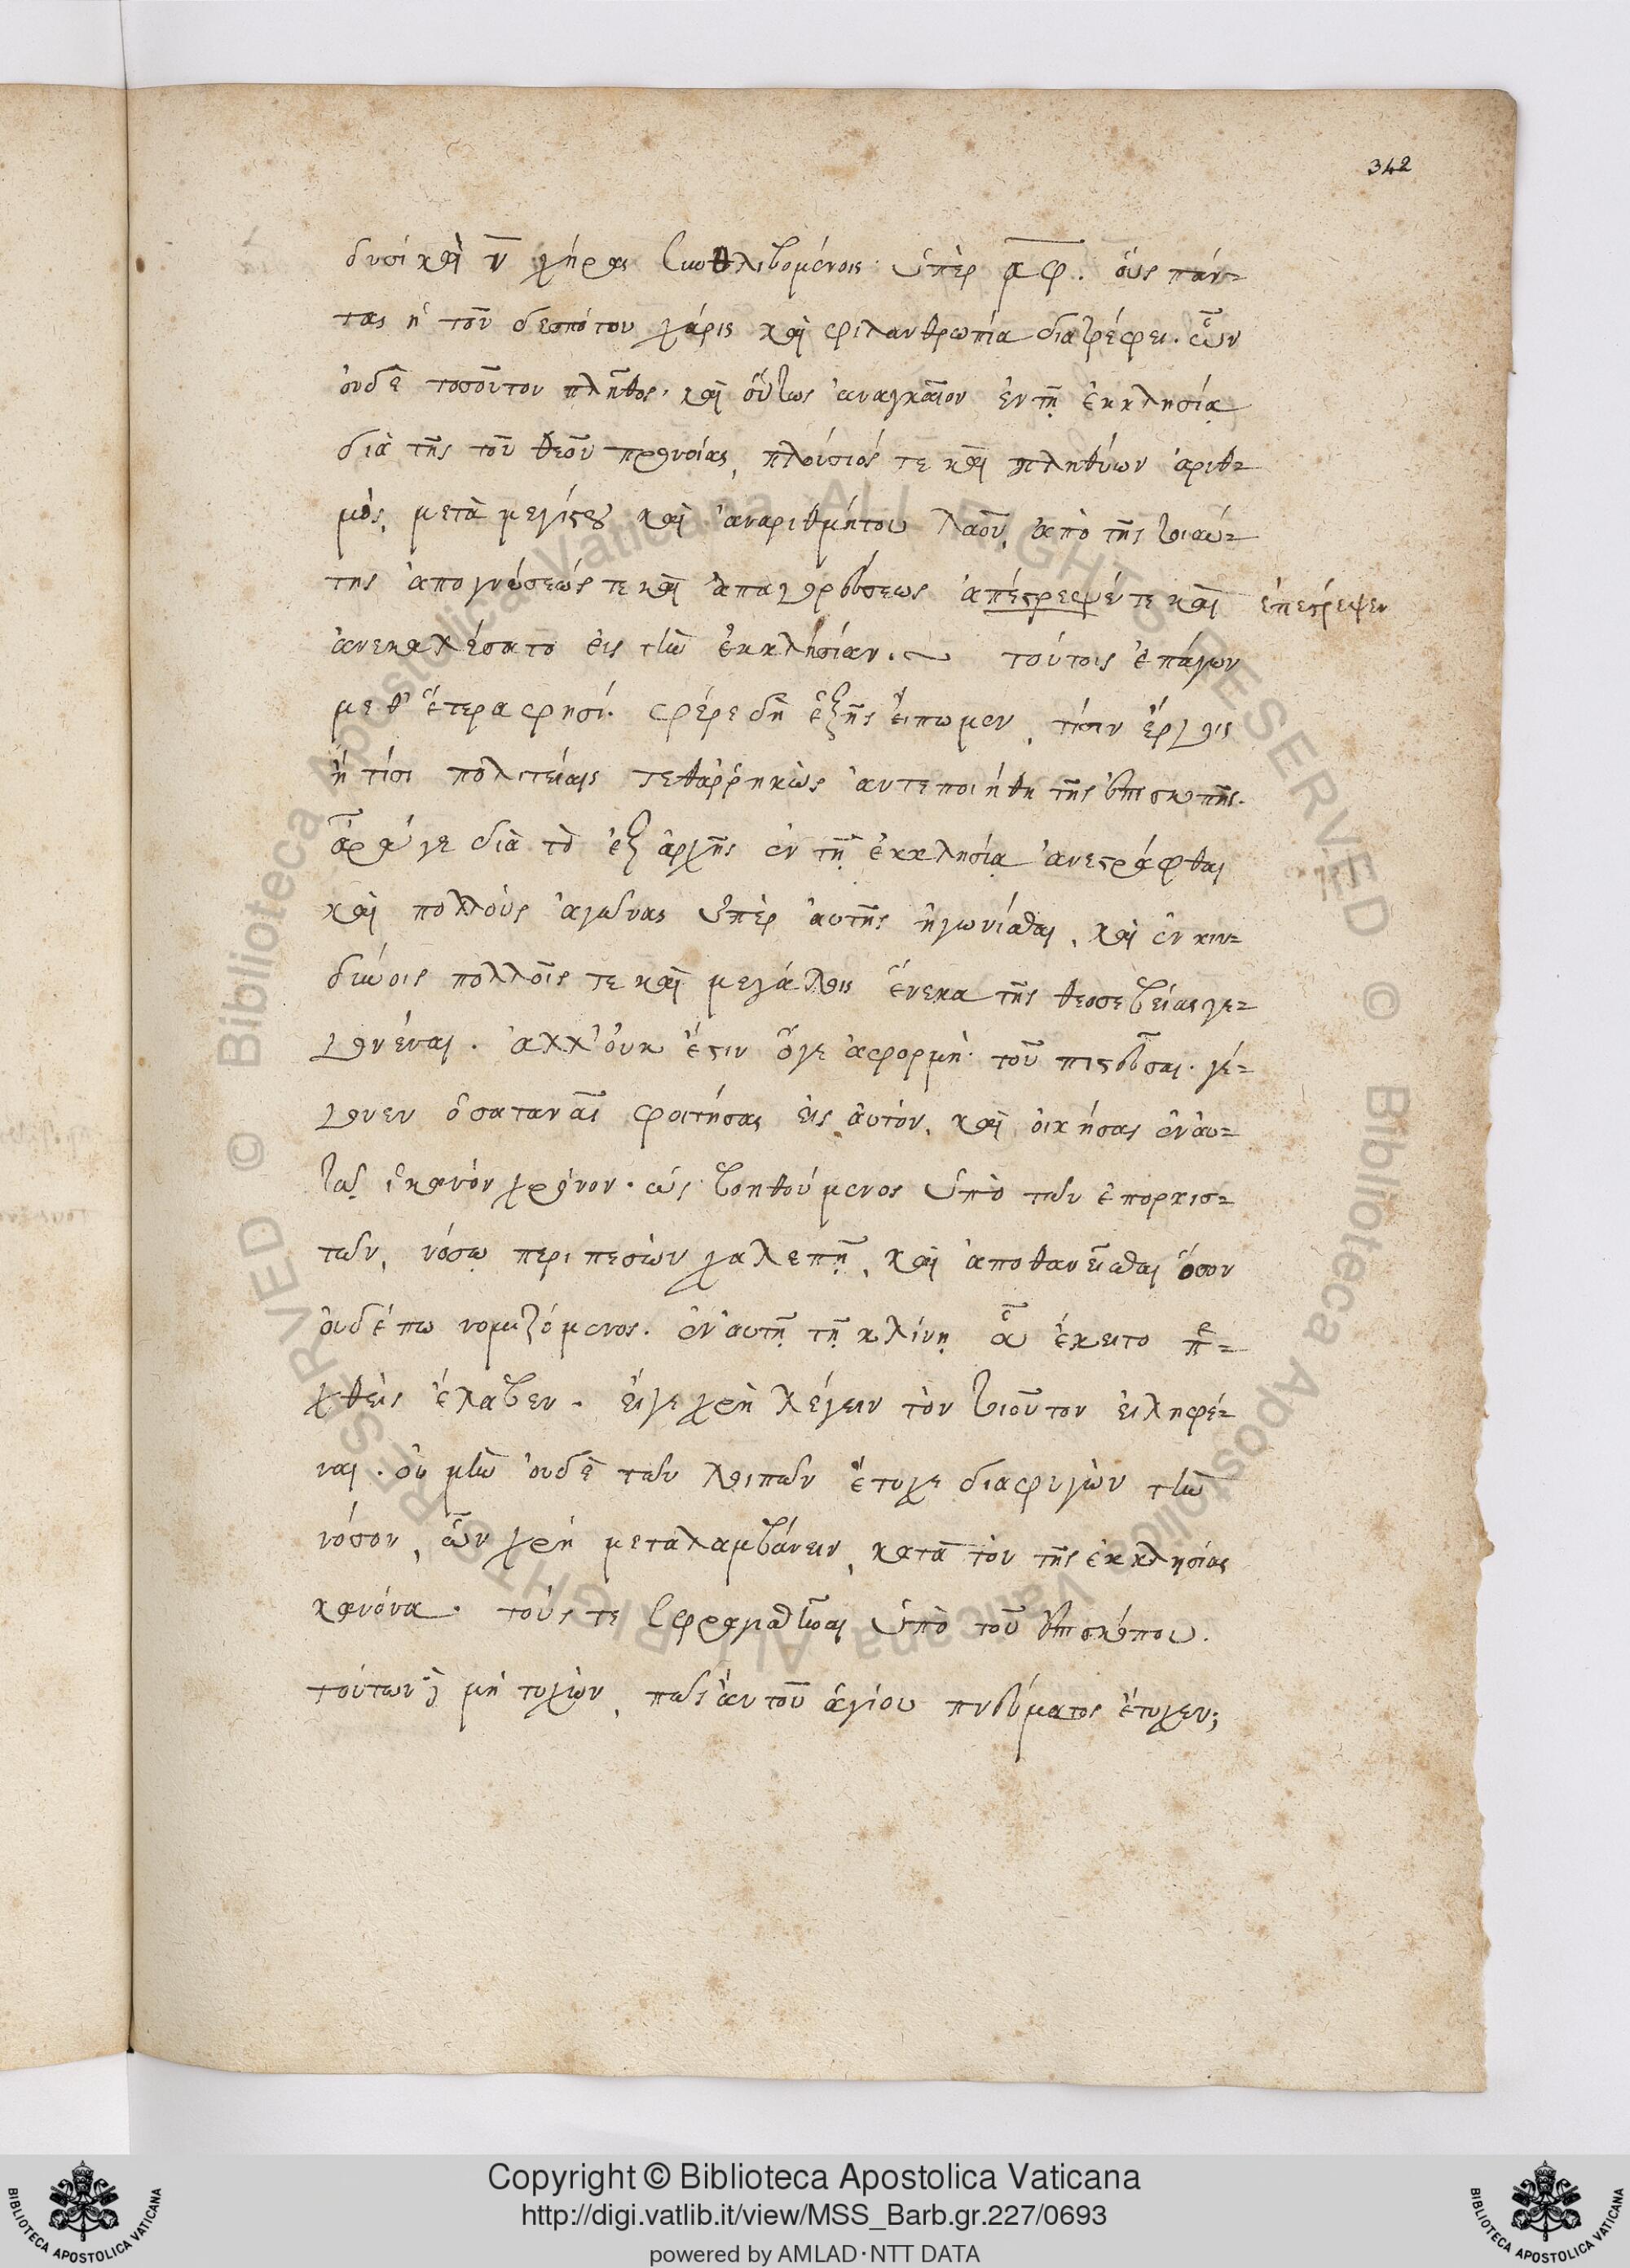 342
δυσὶ καὶ ν̄ χήρας συνθλιβομένοις ὑπὲρ ᾳφ. οὓς πάν-
τας ἡ τοῦ δεσπότου χάρις καὶ φιλανθρωπία διατρέφει. ὧν
οὐδὲ τοσοῦτον πλῆθος. καὶ οὕτως ἀναγκαῖον ἐν τῇ ἐκκλησίᾳ
διὰ τῆς τοῦ θεοῦ προνοίας, πλούσιός τε καὶ πληθύων ἀριθ-
μὸς, μετὰ μεγίστου καὶ ἀναριθμήτου λαοῦ, ἀπὸ τῆς τοιαύ-
της ἀπογνώσεώς τε καὶ ἀπαγορεύσεως ἀπέστρεψέ τε καὶ ἐπέστρεψεν
ἀνεκαλέσατο εἰς τὴν ἐκκλησίαν. τούτοις ἐπάγων
μεθ' ἕτερα φησί. φέρε δὴ ἑξῆς εἴπωμεν, τίσιν ἔργοις
ἢ τίσι πολιτείαις τεθαρρηκὼς ἀντεποιήθη τῆς ἐπισκοπῆς.
ἆρά γε διὰ τὸ ἐξ ἀρχῆς ἐν τῇ ἐκκλησίᾳ ἀνεστράφθαι
καὶ πολλοὺς ἀγῶνας ὑπὲρ αὐτῆς ἠγωνίσθαι, καὶ ἐν κιν-
δύνοις πολλοῖς τε καὶ μεγάλοις ἕνεκα τῆς θεοσεβείας γε-
γονέναι. ἀλλ' οὐκ ἔστιν ὅγε ἀφορμὴ τοῦ πιστεῦσαι. γέ-
γονεν ὁ σατανᾶς φοιτήσας εἰς αὐτὸν, καὶ οἰκήσας ἐν αὐ-
τῷ ἱκανὸν χρόνον. ὡς βοηθούμενος ὑπὸ τῶν ἐπορκισ-
τῶν, νόσῳ περιπεσὼν χαλεπῇ, καὶ ἀποθανεῖσθαι ὅσον
οὐδέπω νομιζόμενος. ἐν αὐτῇ τῇ κλίνῃ οὗ ἔκειτο πε-
χθεὶς ἔλαβεν. εἴγε χρὴ λέγειν τὸν τοιοῦτον εἰληφέ-
ναι. οὐ μὴν οὐδὲ τῶν λοιπῶν ἔτυχε διαφυγὼν τὴν
νόσον, ὧν χρὴ μεταλαμβάνειν, κατὰ τὸν τῆς ἐκκλησίας
κανόνα. τούς τε σφραγισθῆναι ὑπὸ τοῦ ἐπισκόπου.
τούτων δὲ μὴ τυχὼν, πῶς ἂν τοῦ ἁγίου πνεύματος ἔτυχεν;
Copyright © Biblioteca Apostolica Vaticana
http://digi.vatlib.it/view/MSS_Barb.gr.227/0693
powered by AMLAD·NTT DATA